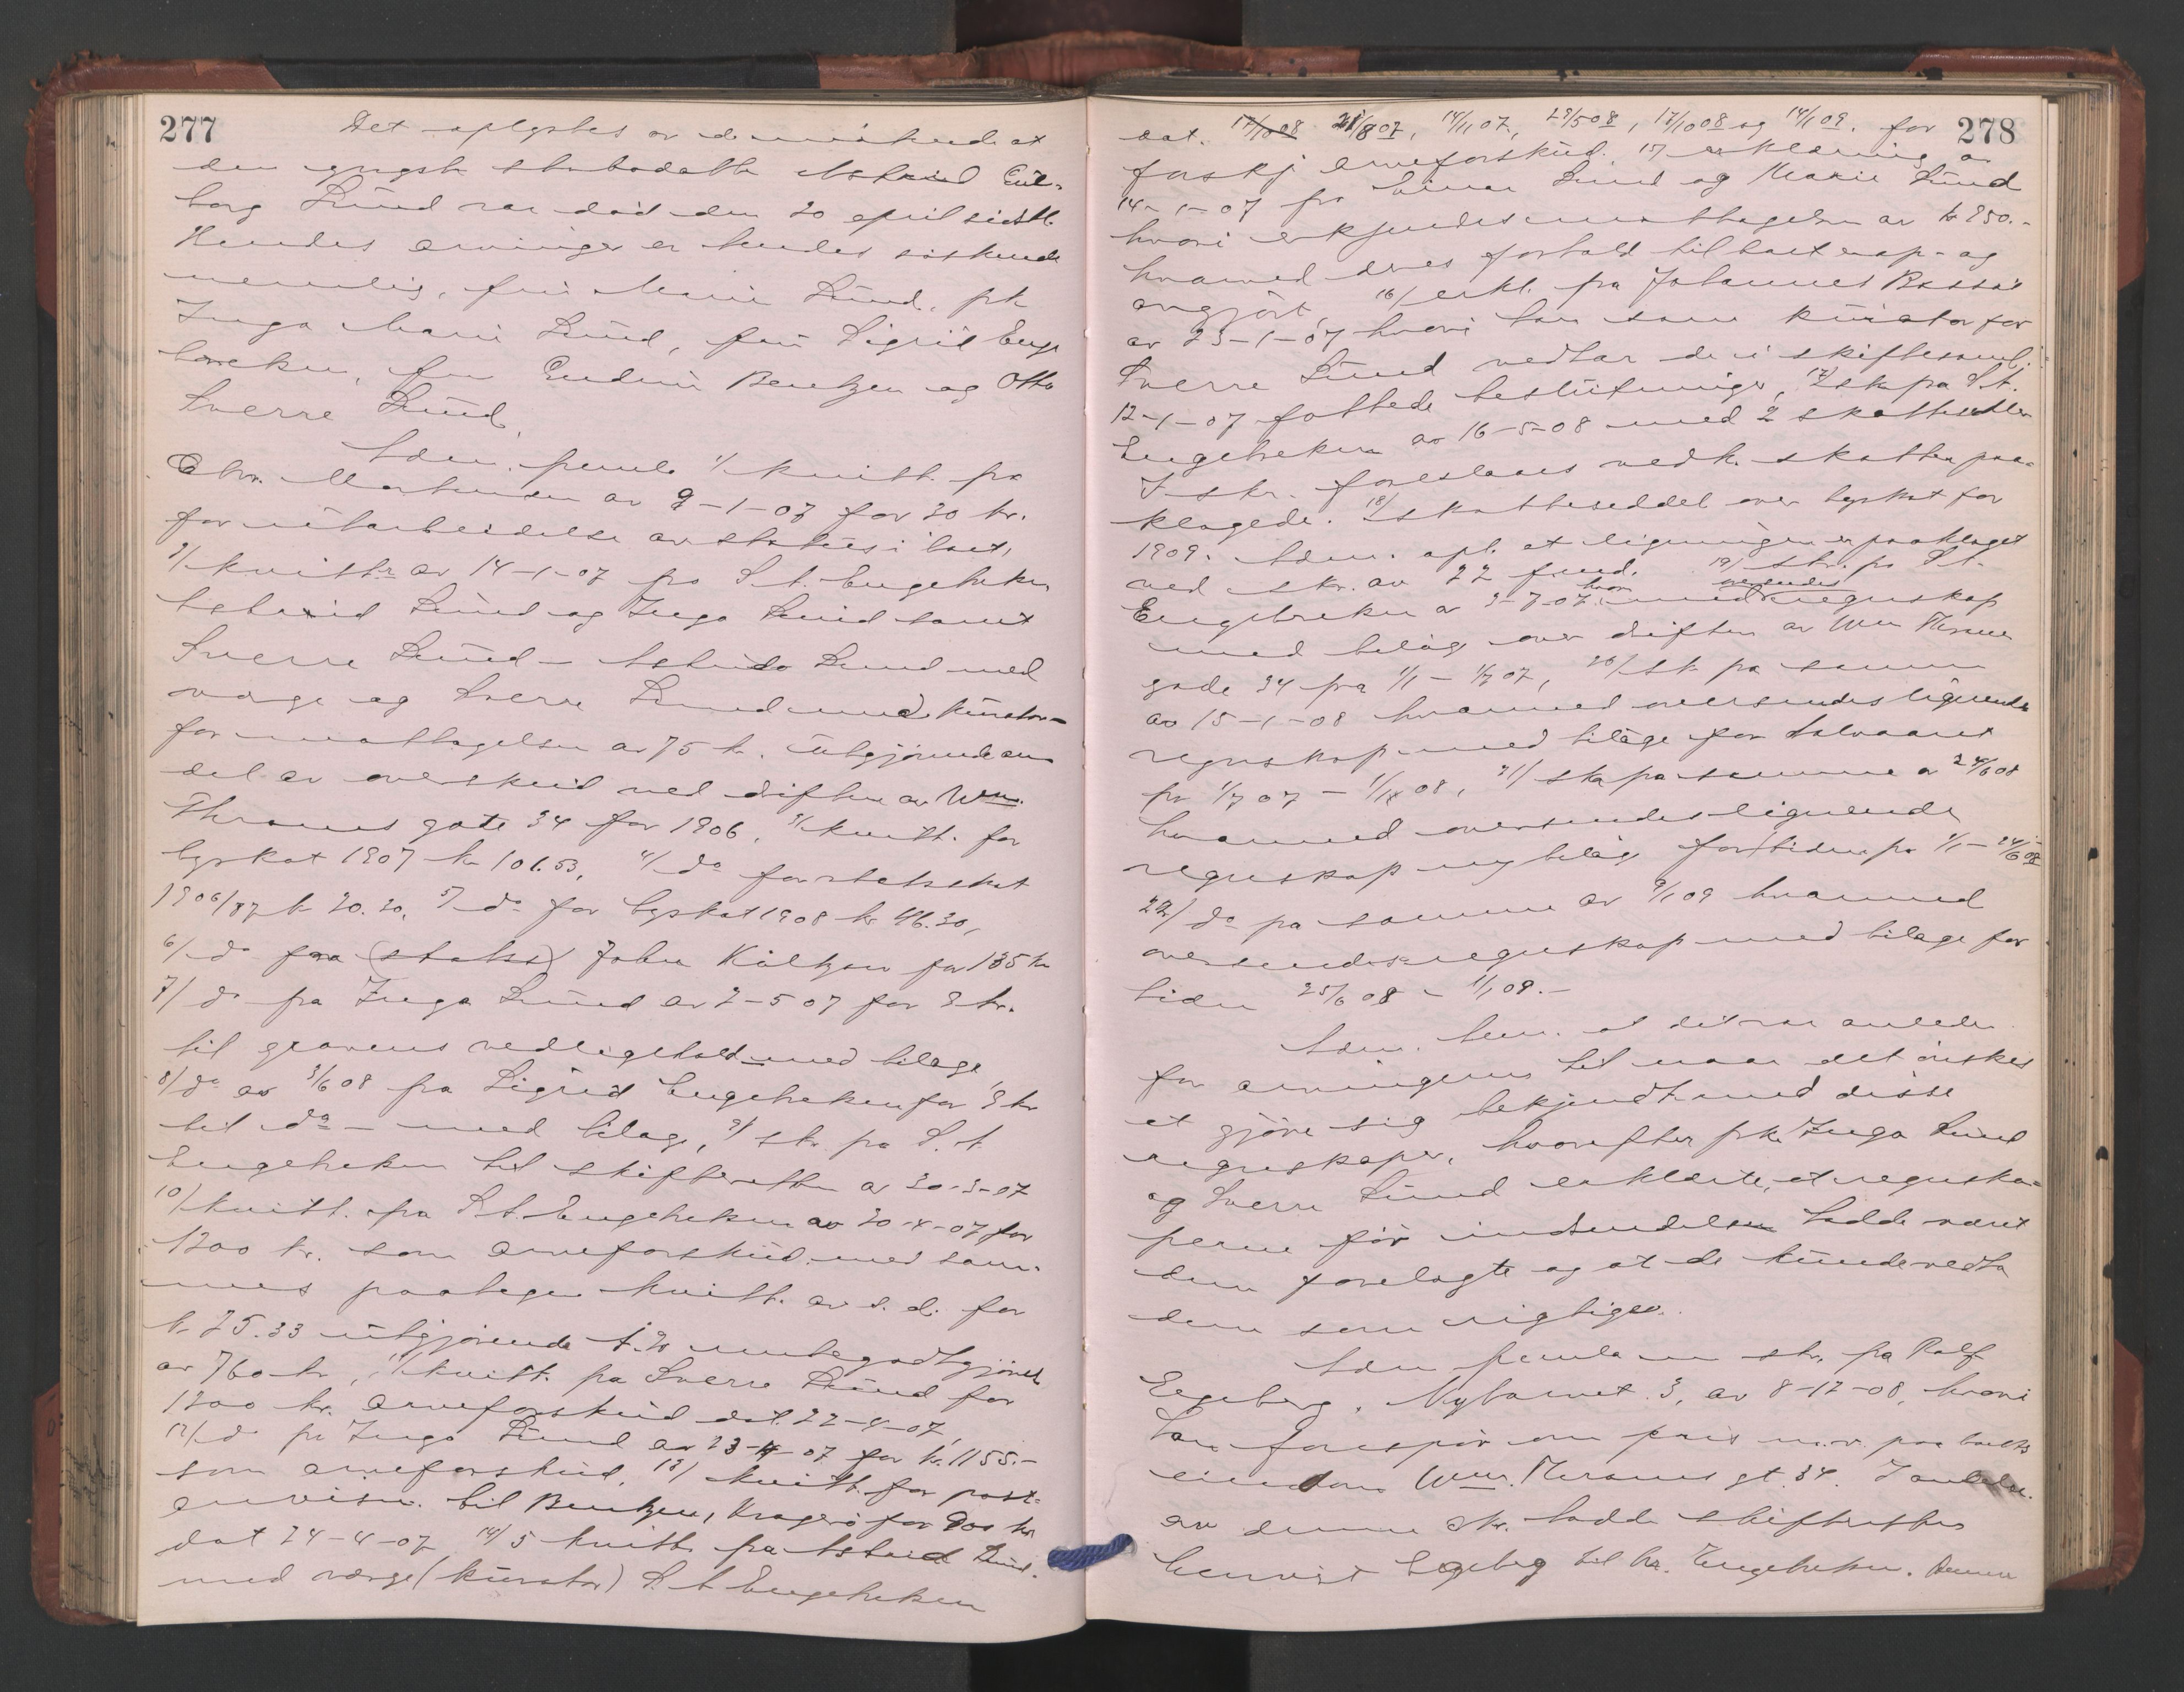 277
Det oplystes av de mötende at
den yngste stedadatter Astrid Eil-
borg Lünd var död den 20 april sidstl.
Hendes arvinger er hendes söskende
nemlig, frü Marie Lünd, frk
Inga Marie Lünd, frü Sigrid Enge
bretsen, fru Gudrün Bentzen og Otto
Sverre Lünd.
Adm. freml. 1/ kvitt. fra
Chr. Mortensen av 9-1-07 for 30 kr.
for ütarbeidelse av status i boet,
2/ kvittr av 14-1-07 fra S. A. Engebretsen
Astrid Lünd og Inga Lund samt
Sverre Lünd - Astrids Lund med
verge og Sverre Lund med kürator -
for mottagelsen av 75 kr. ütgjörende an
del av overskud ved driften av Wm.
Thranes gate 34 for 1906, 3/ kvitt. for
byskat 1907 kr 101.53, 4/ do for statsskat
1906/07 kr 20.20, 5/ do for byskat 1908 kr 46.20,
6/ do fra (statss) John Kültzow for 135 kr
7/ do fra Inga Lünd av 2-5 07 for 8 kr.
til gravens vedligehold med bilage,
8/ do av 3/6 08 fra Sigrid Engebretsen for 8 kr
til do - med bilag, 9/ skr. fra S. A.
Engebretsen til skifteretten av 20-3-07
10/ kvitt. fra S. A. Engebretsen av 20-4-07 for
1200 kr. som arveforsküd med sam-
mes paategn. kvitt. av s. d. for
kr 25.33 ütgjörende
av 760 kr, 11/ kvitt. fra Sverre Lünd for
1200 kr. arveforsküd dat. 22-4-07,
12/ do fr Inga Lünd av 23-4-07 for kr. 1155.-
som arveforsküd, 13/ kvitt. for post-
anvisn. til Bentzen, Kragerö for 900 kr
dat 24-4-07 14/ 5 kvittr fra Astrid Lünd.
med verge (kürator) S. A Engebretsen
278
dat. 17/10 08 21/8 07, 14/11 07, 29/5 08, 17/10 08 og 14/1 09. for
forskj arveforsküd. 15/ erklæring av
14-1-07 fra Einar Lund og Marie Lünd
hvori erkjendes mottagelsen av kr 850.-
hvormed deres forhold til boet er op- og
avgjört, 16/ erkl. fra Johannes
av 23-1-07 hvori han som kürator for
Sverre Lünd vedtar de i skiftesaml.
12-1-07 fattede beslütninger, 17/ skr fra S. A.
Engebretsen av 16-5-08 med 2 skattesedler
I skr. foreslaaes vedk. skatten paa-
klagede. 18/ skatteseddel over byskat for
1909. Adm. opl. at ligningen er paaklaget
ved skr. av 22 19/ skr. fra S. A.
Engebretsen av 3-7-07 hvor med oversendes regnskap
med bilag over driften av Wm Thranes
gade 34 fra 1/1 - 1/7 07, 20/ skr. fra samme
av 15-1-08 hvormed oversendes lignende
regnskap med bilage for halvaaret
fr 1/7 07 - 1/1 08, 21/ skr fra samme av 24/6 08
hvormed oversendes lignende
regnskap m/ bilag for tiden fra 1/1 - 24/6 08
22/ do fra samme av 9/1 09 hvormed
oversendes regnskap med bilage for
tiden 25/6 08 - 1/1 09.-
Adm. bem. at det var anledn.
for arvingerne til naar det önskes
at gjöre sig bekjendt med disse
regnskaper, hvorefter frk. Inga Lünd
og Sverre Lünd erklærte, at regnska-
perne för indsendelsen hadde været
dem forelagte og at de künde vedta
dem som rigtige.
Adm freml. en skr. fra Rolf
Egeberg, Nyhavnet 3, av 8-12-08, hvori
han forespör om pris m. v. paa boets
eiendom Wm. Thranes gt. 34. I anledn.
av denne skr. hadde skifteretten
henvist Egeberg til hr. Engebretsen. Denne